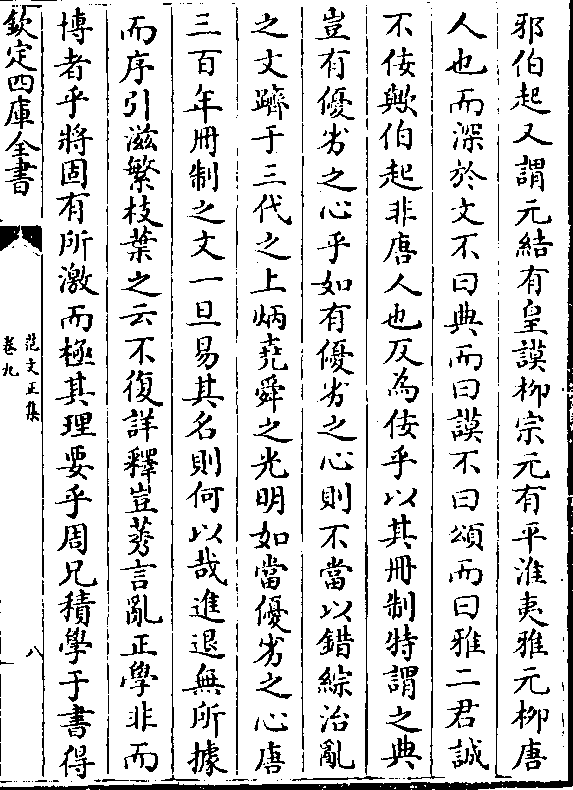 邪伯起又謂元結有皇謨栁宗元有平淮夷雅元栁唐
人也而深於文不曰典而曰謨不曰頌而曰雅二君誠
不佞歟伯起非唐人也反為佞乎以其冊制特謂之典
豈有優劣之心乎如有優劣之心則不當以錯綜治亂
之文躋于三代之上炳堯舜之光明如當優劣之心唐
三百年冊制之文一旦易其名則何以哉進退無所據
而序引滋繁枝葉之云不復詳釋豈莠言亂正學非而
博者乎將固有所激而極其理要乎周兄積學于書得
欽定四庫全書
范文正集
卷九
八